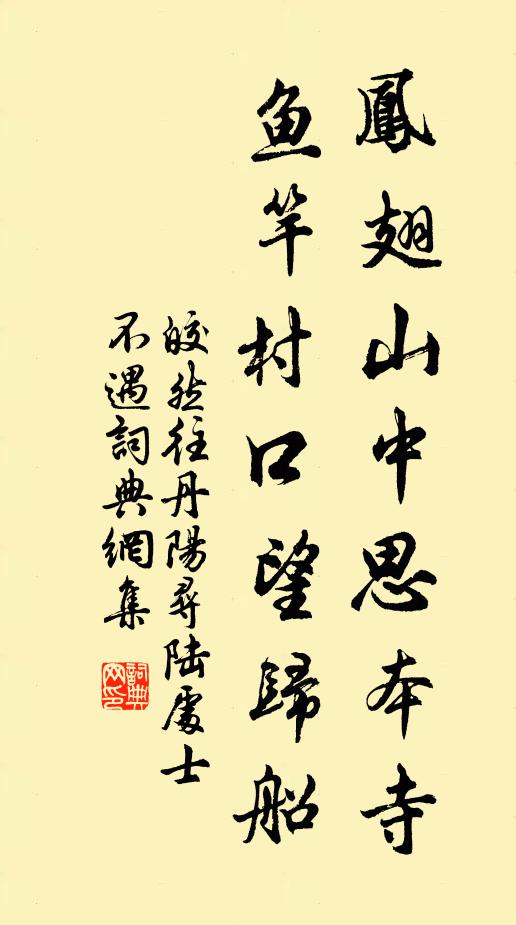 鳳翅山中思本寺
鱼竿村口望歸船
皎然往丹陽尋陆處士
不遇詞典網集
詞典网印